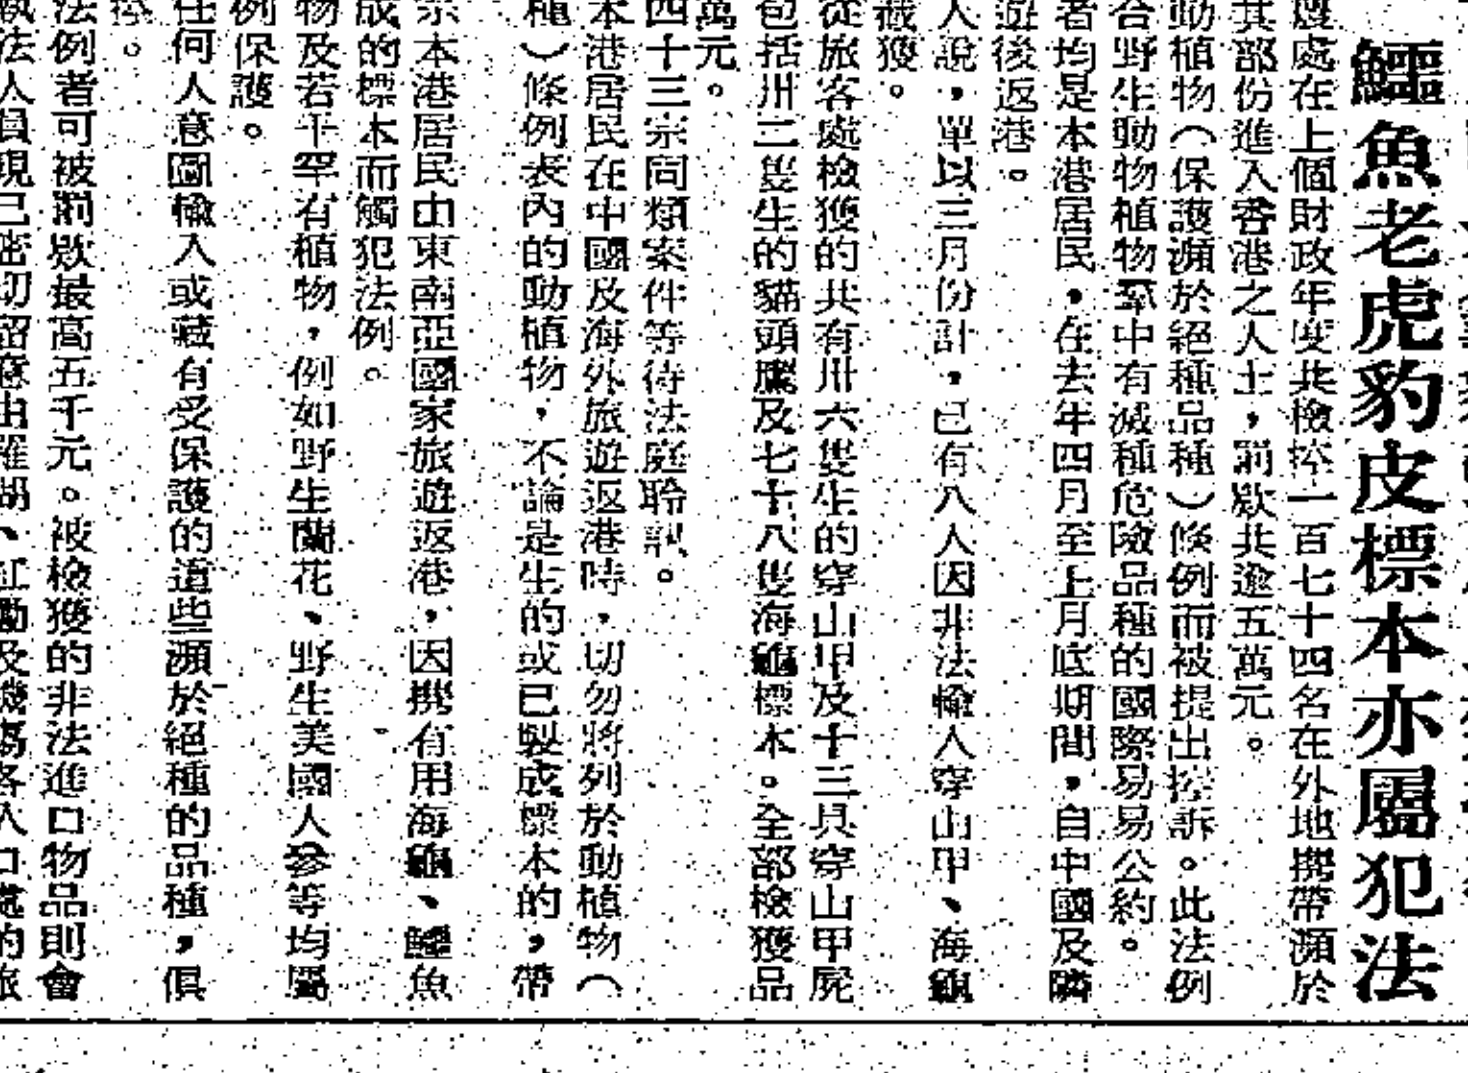 鱷魚老虎豹皮標本亦屬犯法
處在上個財政年度共檢控一百七十四名在外地携帶瀕於
其部份進入香港之人士，罰欵共逾五萬元。
動植物（保護瀕於絕種品種）條例而被提出控訴。此法例
合野生動物植物羣中有滅種危險品種的國際易易公約。
者均是本港居民，在去年四月至上月底期間，自中國及隣
遊後返港。
人說，單以三月份計，已有八人因非法輸入穿山甲、海龜
截獲。
從旅客處檢獲的共有卅六隻生的穿山甲及十三具穿山甲屍
包括卅二隻生的貓頭鷹及七十八隻海龜標本。全部檢獲品
萬元。
四十三宗同類案件等待法庭聆訊。
本港居民在中國及海外旅遊返港時，切勿將列於動植物（
種）條例表內的動植物，不論是生的或已製成標本的，帶
宗本港居民由東南亞國家旅遊返港，因携有用海龜、鱷魚
成的標本而觸犯法例。
物及若干罕有植物，例如野生蘭花、野生美國人參等均屬
例保護。
任何人意圖輸入或藏有受保護的這些瀕於絕種的品種，俱
控。
法例者可被罰欵最高五千元。被檢獲的非法進口物品則會
執法人員現已密切留意由羅湖、紅磡及機塲各入口處的旅